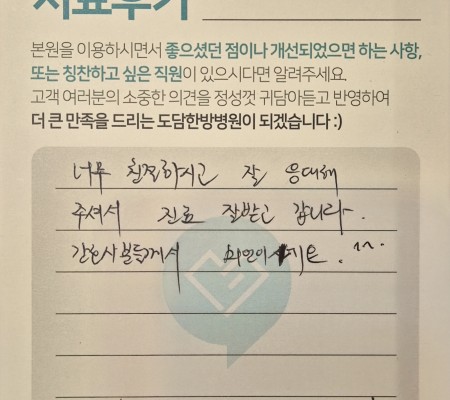 치료후기
본원을 이용하시면서 좋으셨던 점이나 개선되었으면 하는 사항,
또는 칭찬하고 싶은 직원이 있으시다면 알려주세요.
고객 여러분의 소중한 의견을 정성껏 귀담아듣고 반영하여
더 큰 만족을 드리는 도담한방병원이 되겠습니다 :)
너무 친절하시고 잘 응대해
주셔서 진료 잘받고 갑니다.
간호사분들께서